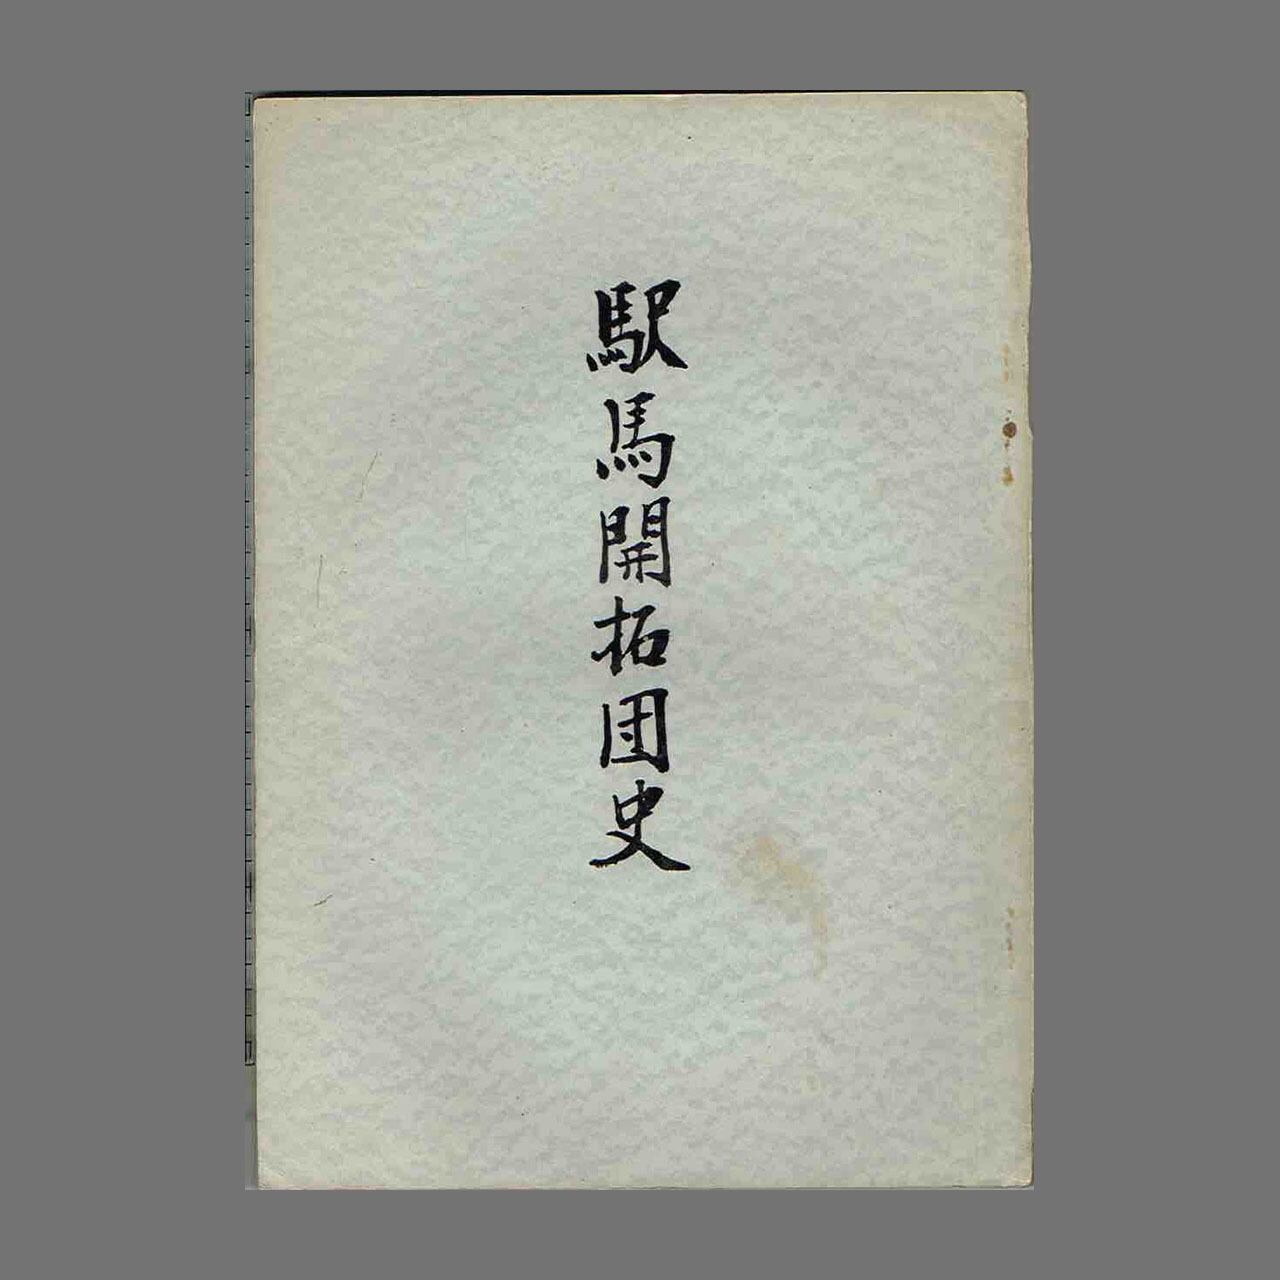 駅馬開拓団史